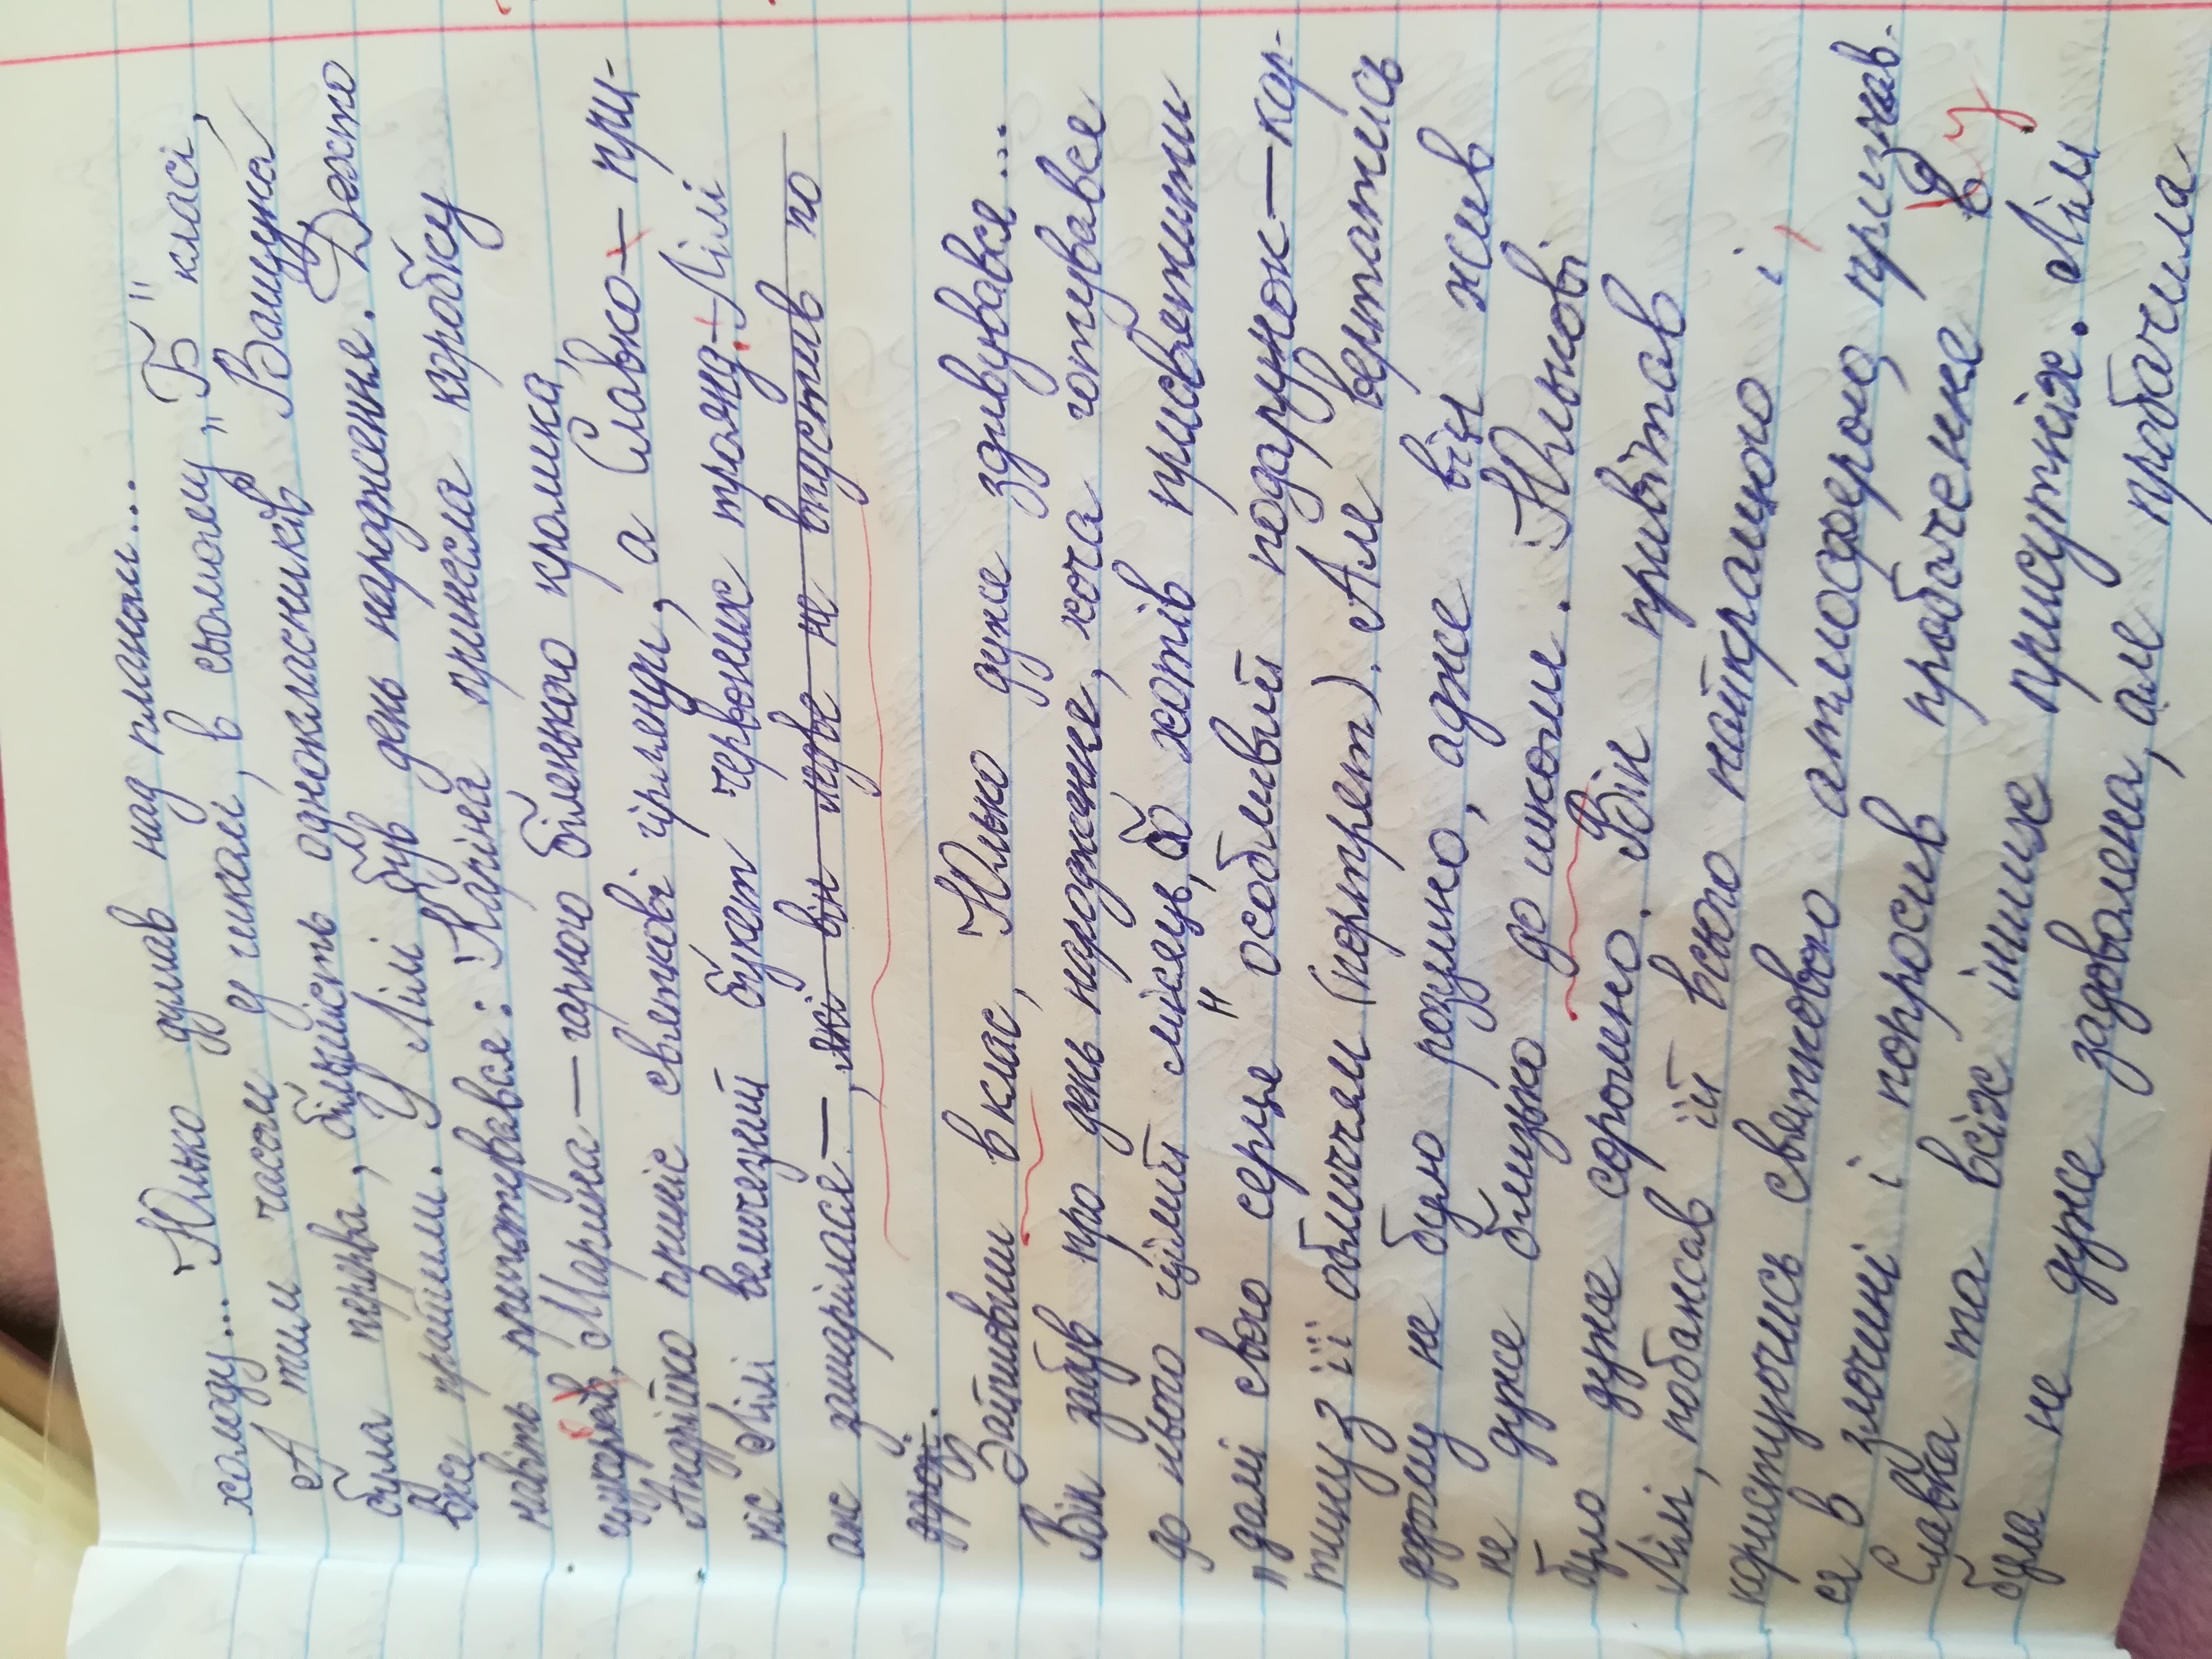 холоду... Юлько думав над планом...
А тим часом у школі, в сьомому „Б" класі,
була перерва, більшість однокласників Ващука
вже прийшли. У Лілі був день народження. Дехто
навіть приготувався: Каріна принесла коробку
цукерок, Марина — гарного біленького кролика,
Андрійко приніс святкові гірлянди, а Славко — при-
ніс Лілі величезний букет червоних троянд — Лілі
аж зашарілася —, які він ледве не впустив по
дорозі.
Зайшовши в клас, Юлько дуже здивувався...
Він забув про день народження, хоча готувався
до нього цілий місяць, бо хотів присвятити
"далі свого серця" особливий подарунок — кар-
тину з її обличчям (портрет). Але вертатись
додому не було розумно, адже він жив
не дуже близько до школи. Юлькові
було дуже соромно. Він привітав
Лілі, побажав їй всього найкращого і,
користуючись святковою атмосферою, признав-
ся в злочині і попросив пробачення в у
Славка та всіх інших присутніх. Ліля
була не дуже задоволена, але пробачила